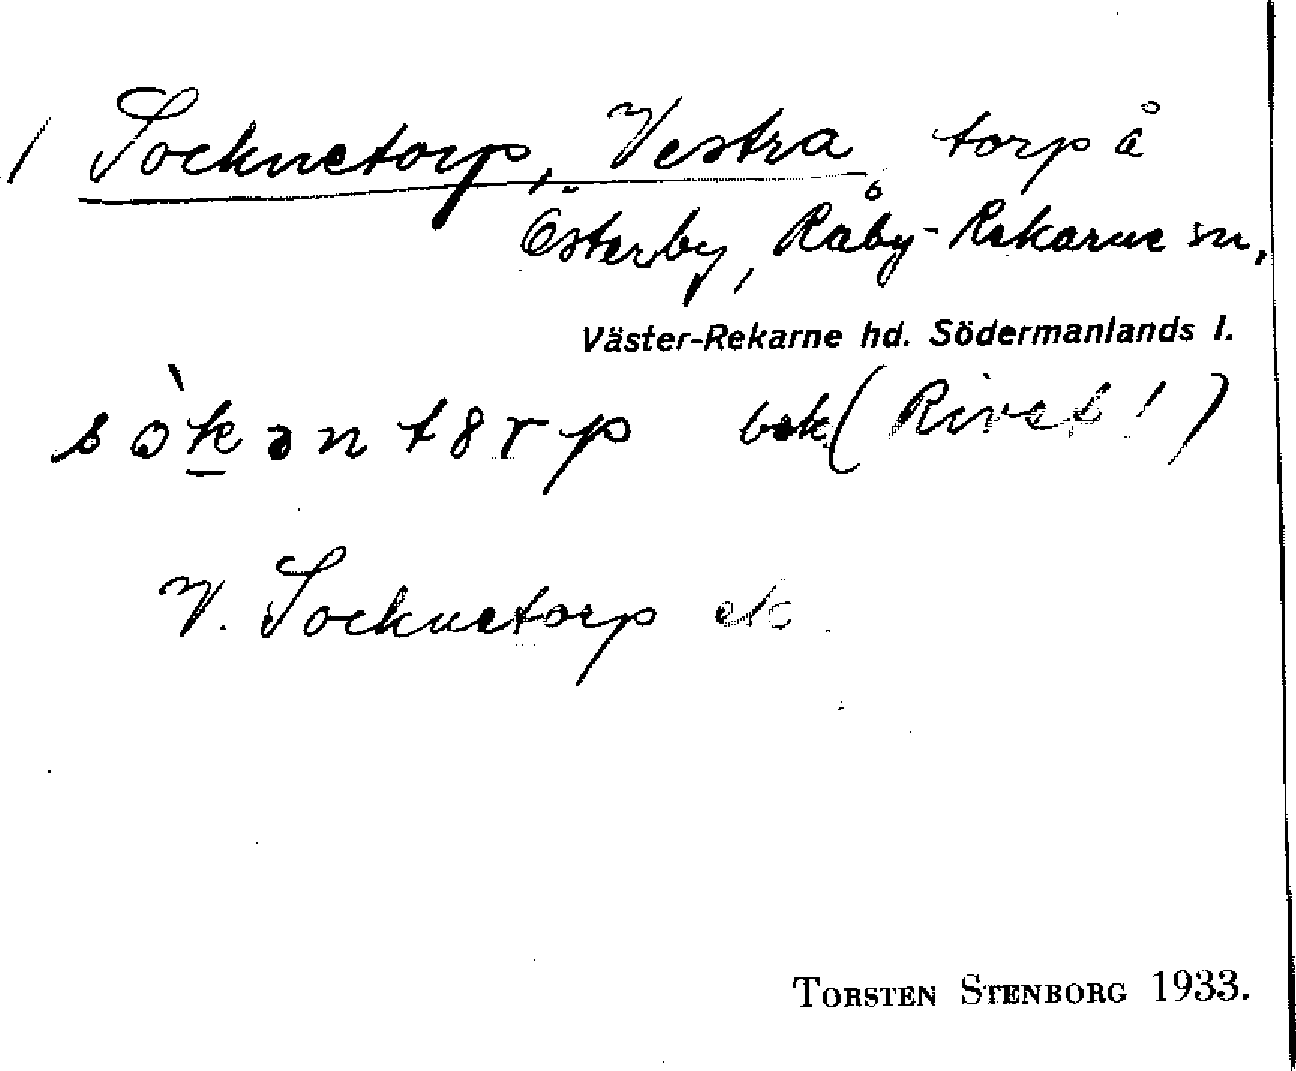 / Socknetorp, Vestra torp å
Österby, Råby-Rekarne sn,
Väster-Rekarne hd. Södermanlands l.
sòkəntɞrp bek (Rivet!)
V. Socknetorp ek
TORSTEN STENBORG 1933.